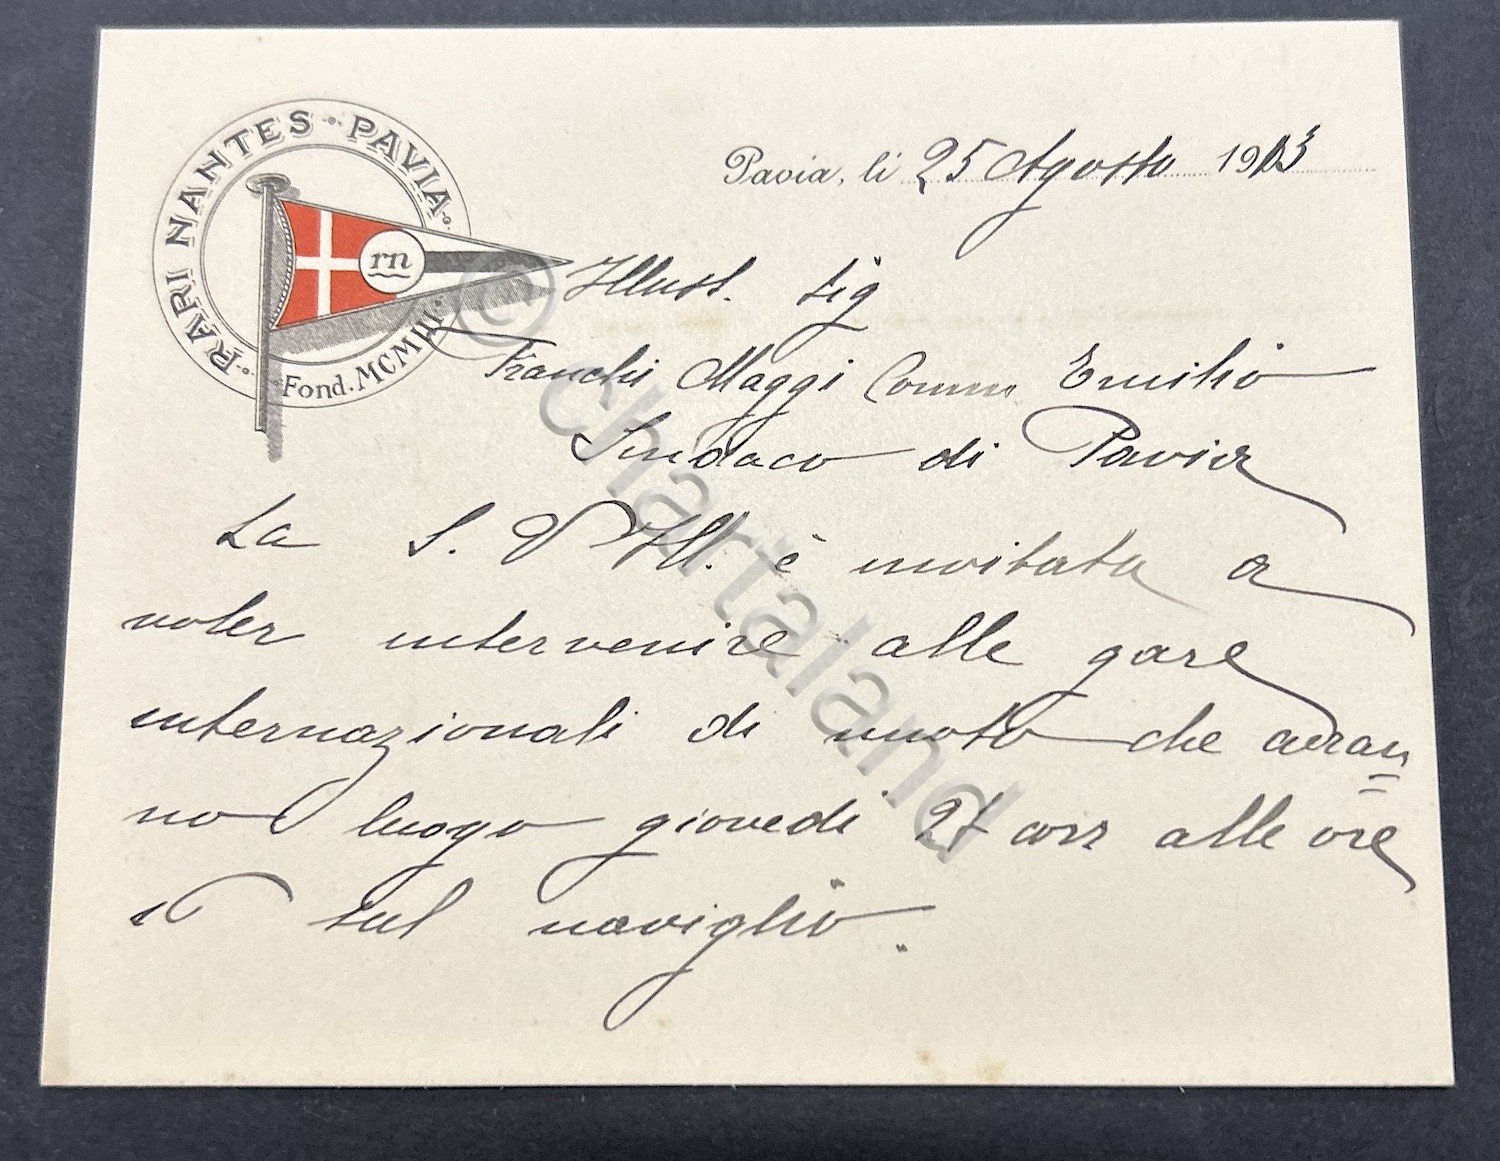 RARI NANTES - PAVIA
Fond. MCMIII.
rn
Pavia, li 25 Agosto 1913
Illust. Sig
Franchi Maggi Comm Emilio
Sindaco di Pavia
La S. V Ill. è invitata a
voler intervenire alle gare
internazionali di nuoto che avran=
no luogo giovedi 27 corr alle ore
sul naviglio.
© Chartaland